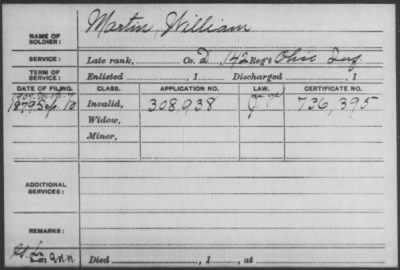 Martin, William
NAME OF
SOLDIER:
SERVICE: Late rank, Co. D, 142 Reg't Ohio Inf
TERM OF
SERVICE: Enlisted , 1 Discharged , 1
DATE OF FILING. CLASS. APPLICATION NO. LAW. CERTIFICATE NO.
1879 Sep. 10 Invalid, 308,038 736,395
Widow,
Minor,
ADDITIONAL
SERVICES:
REMARKS:
Died , 1 , at